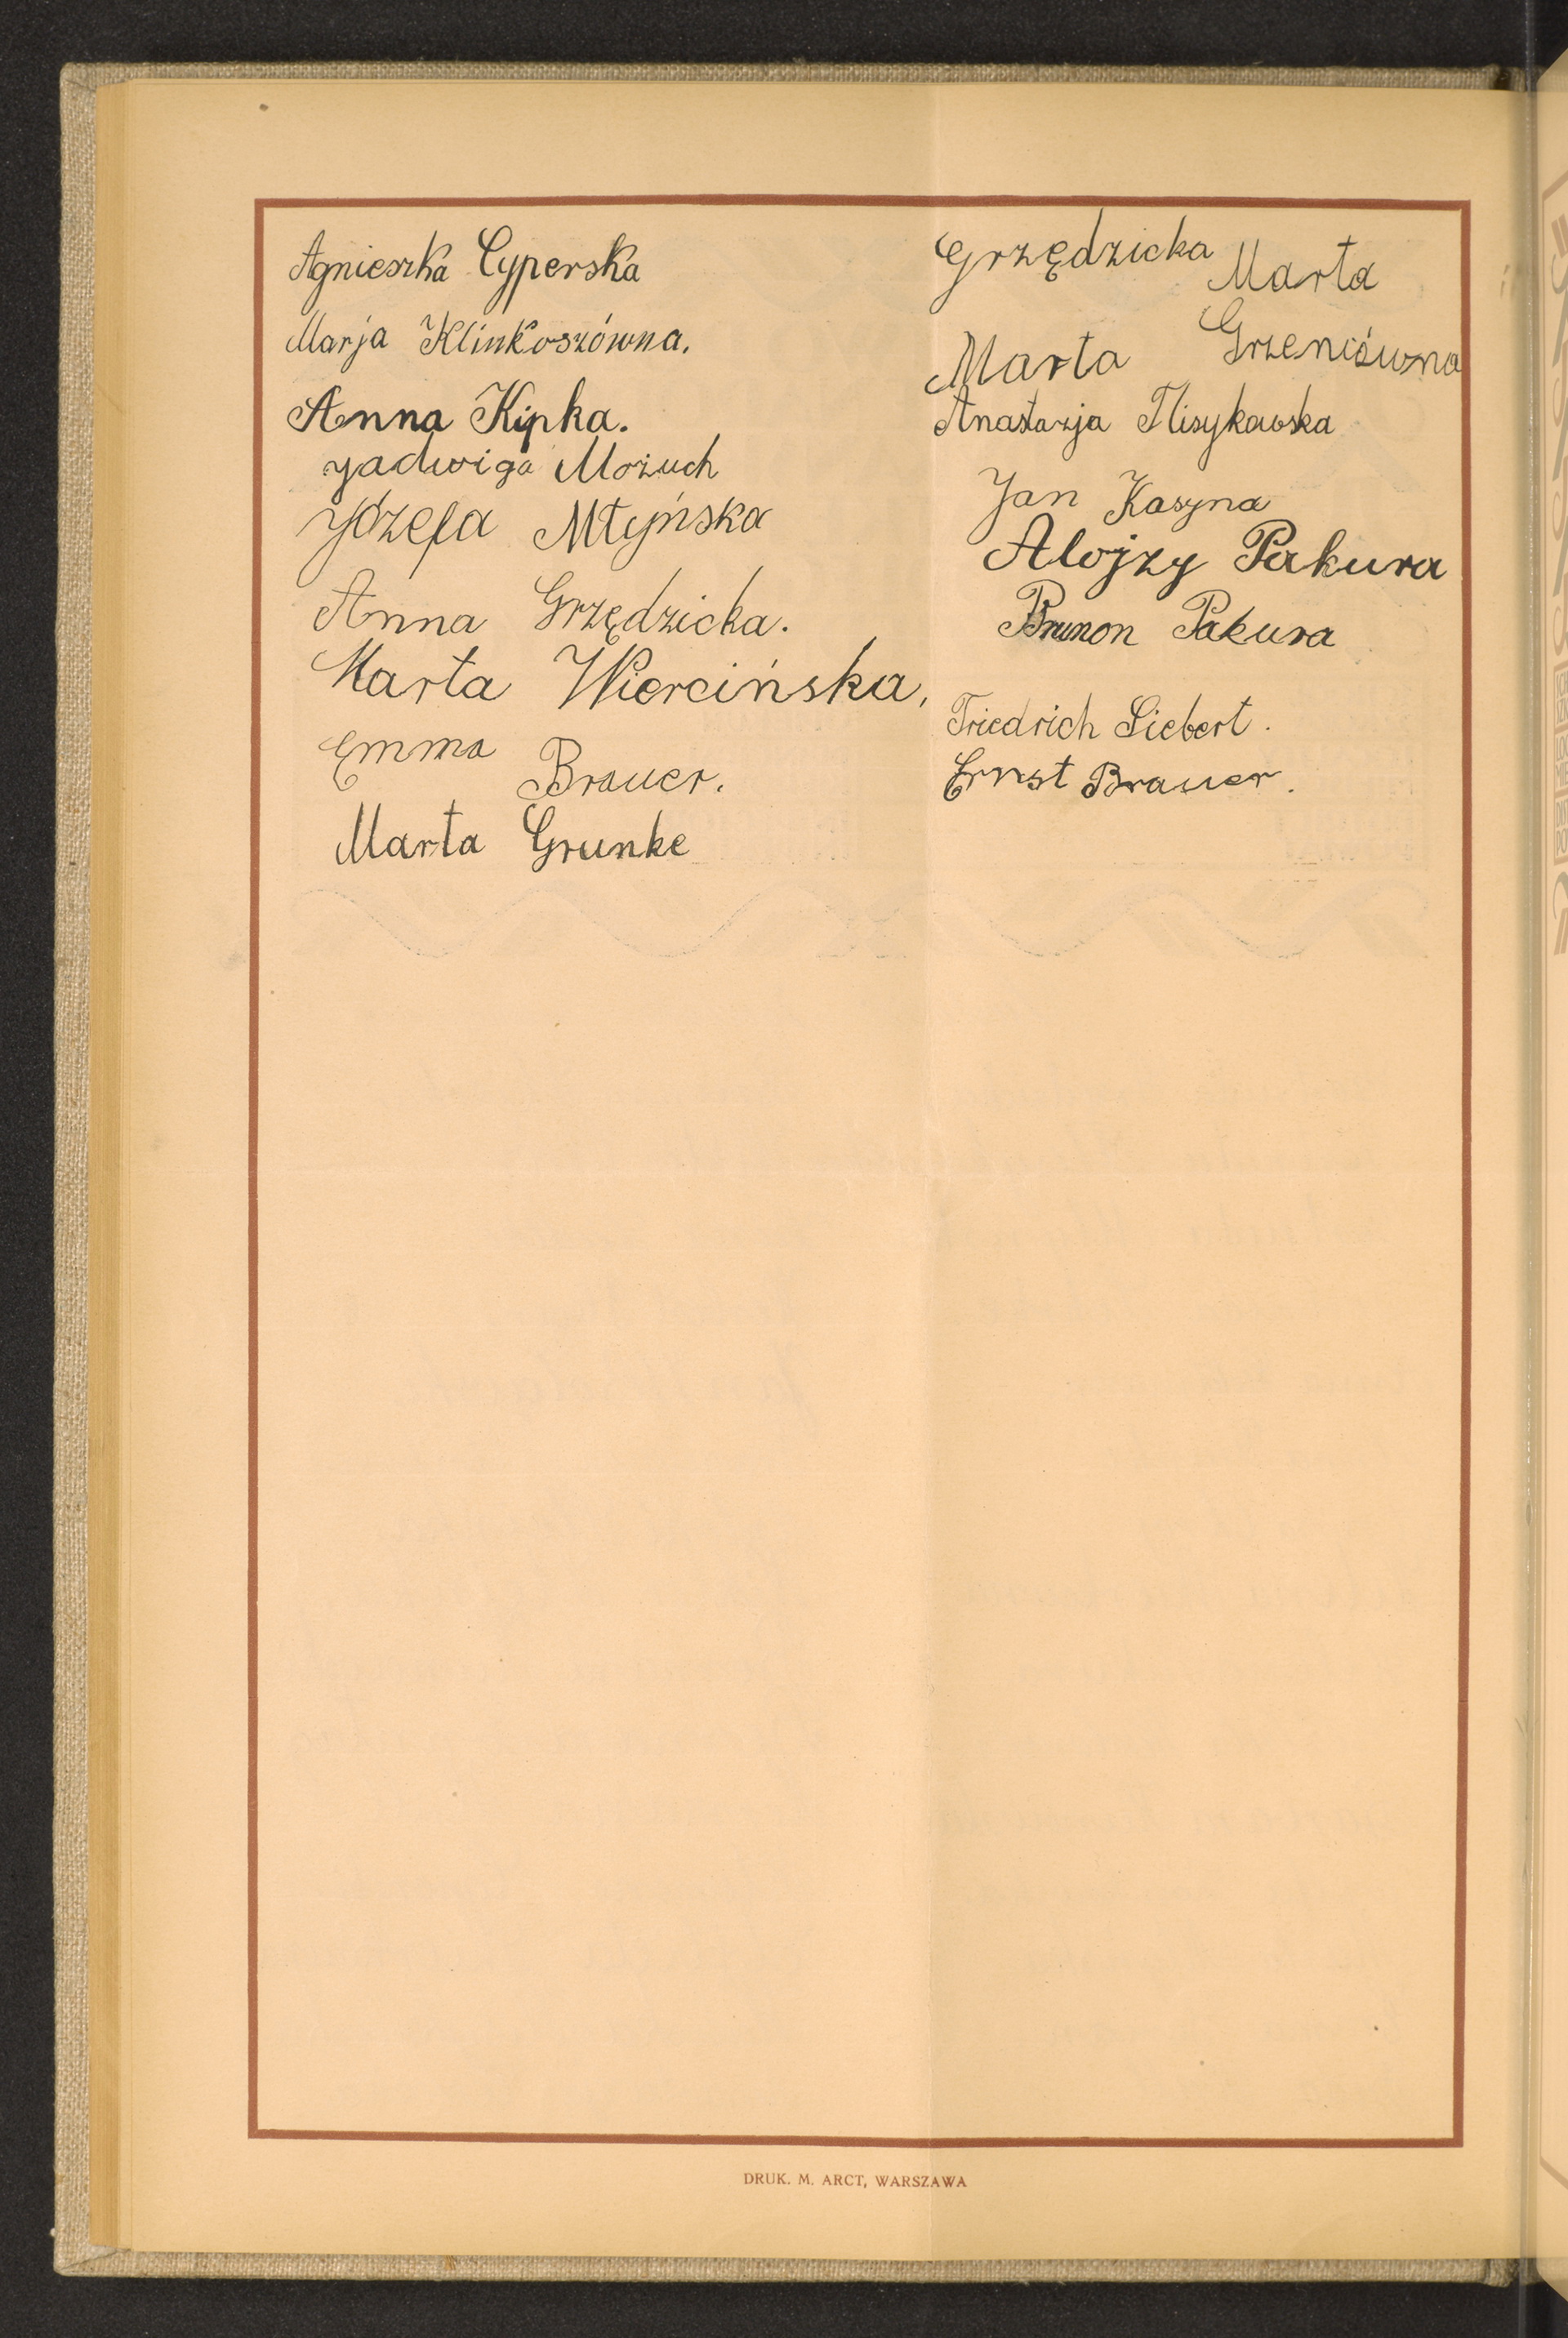 Agnieszka Cyperska
Marja Klinkoszówna.
Anna Kipka.
Jadwiga Možuch
Józefa Młyńska
Anna Grzędzicka.
Marta Wiercińska,
Emma Brauer.
Marta Grunke
Grzędzicka Marta
Marta Grzeniówna
Anastazja Flisykowska
Jan Kasyna
Alojzy Pakura
Brunon Pakura
Friedrich Siebert.
Ernst Brauer.
DRUK. M. ARCT, WARSZAWA